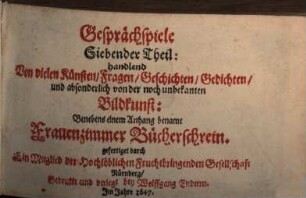 Gesprächspiele
Siebender Theil:
handlend
Von vielen Künsten/ Fragen/ Geschichten/ Gedichten/
und absonderlich von der noch unbekanten
Bildkunst:
Benebens einem Anhang benamt
Frauenzimmer Bücherschrein.
gefertiget durch
Ein Mitglied der Hochlöblichen Fruchtbringenden Gesellschaft
Nürnberg/
Gedruckt und verlegt bey Wolffgang Endtern.
Im Jahre 1647.